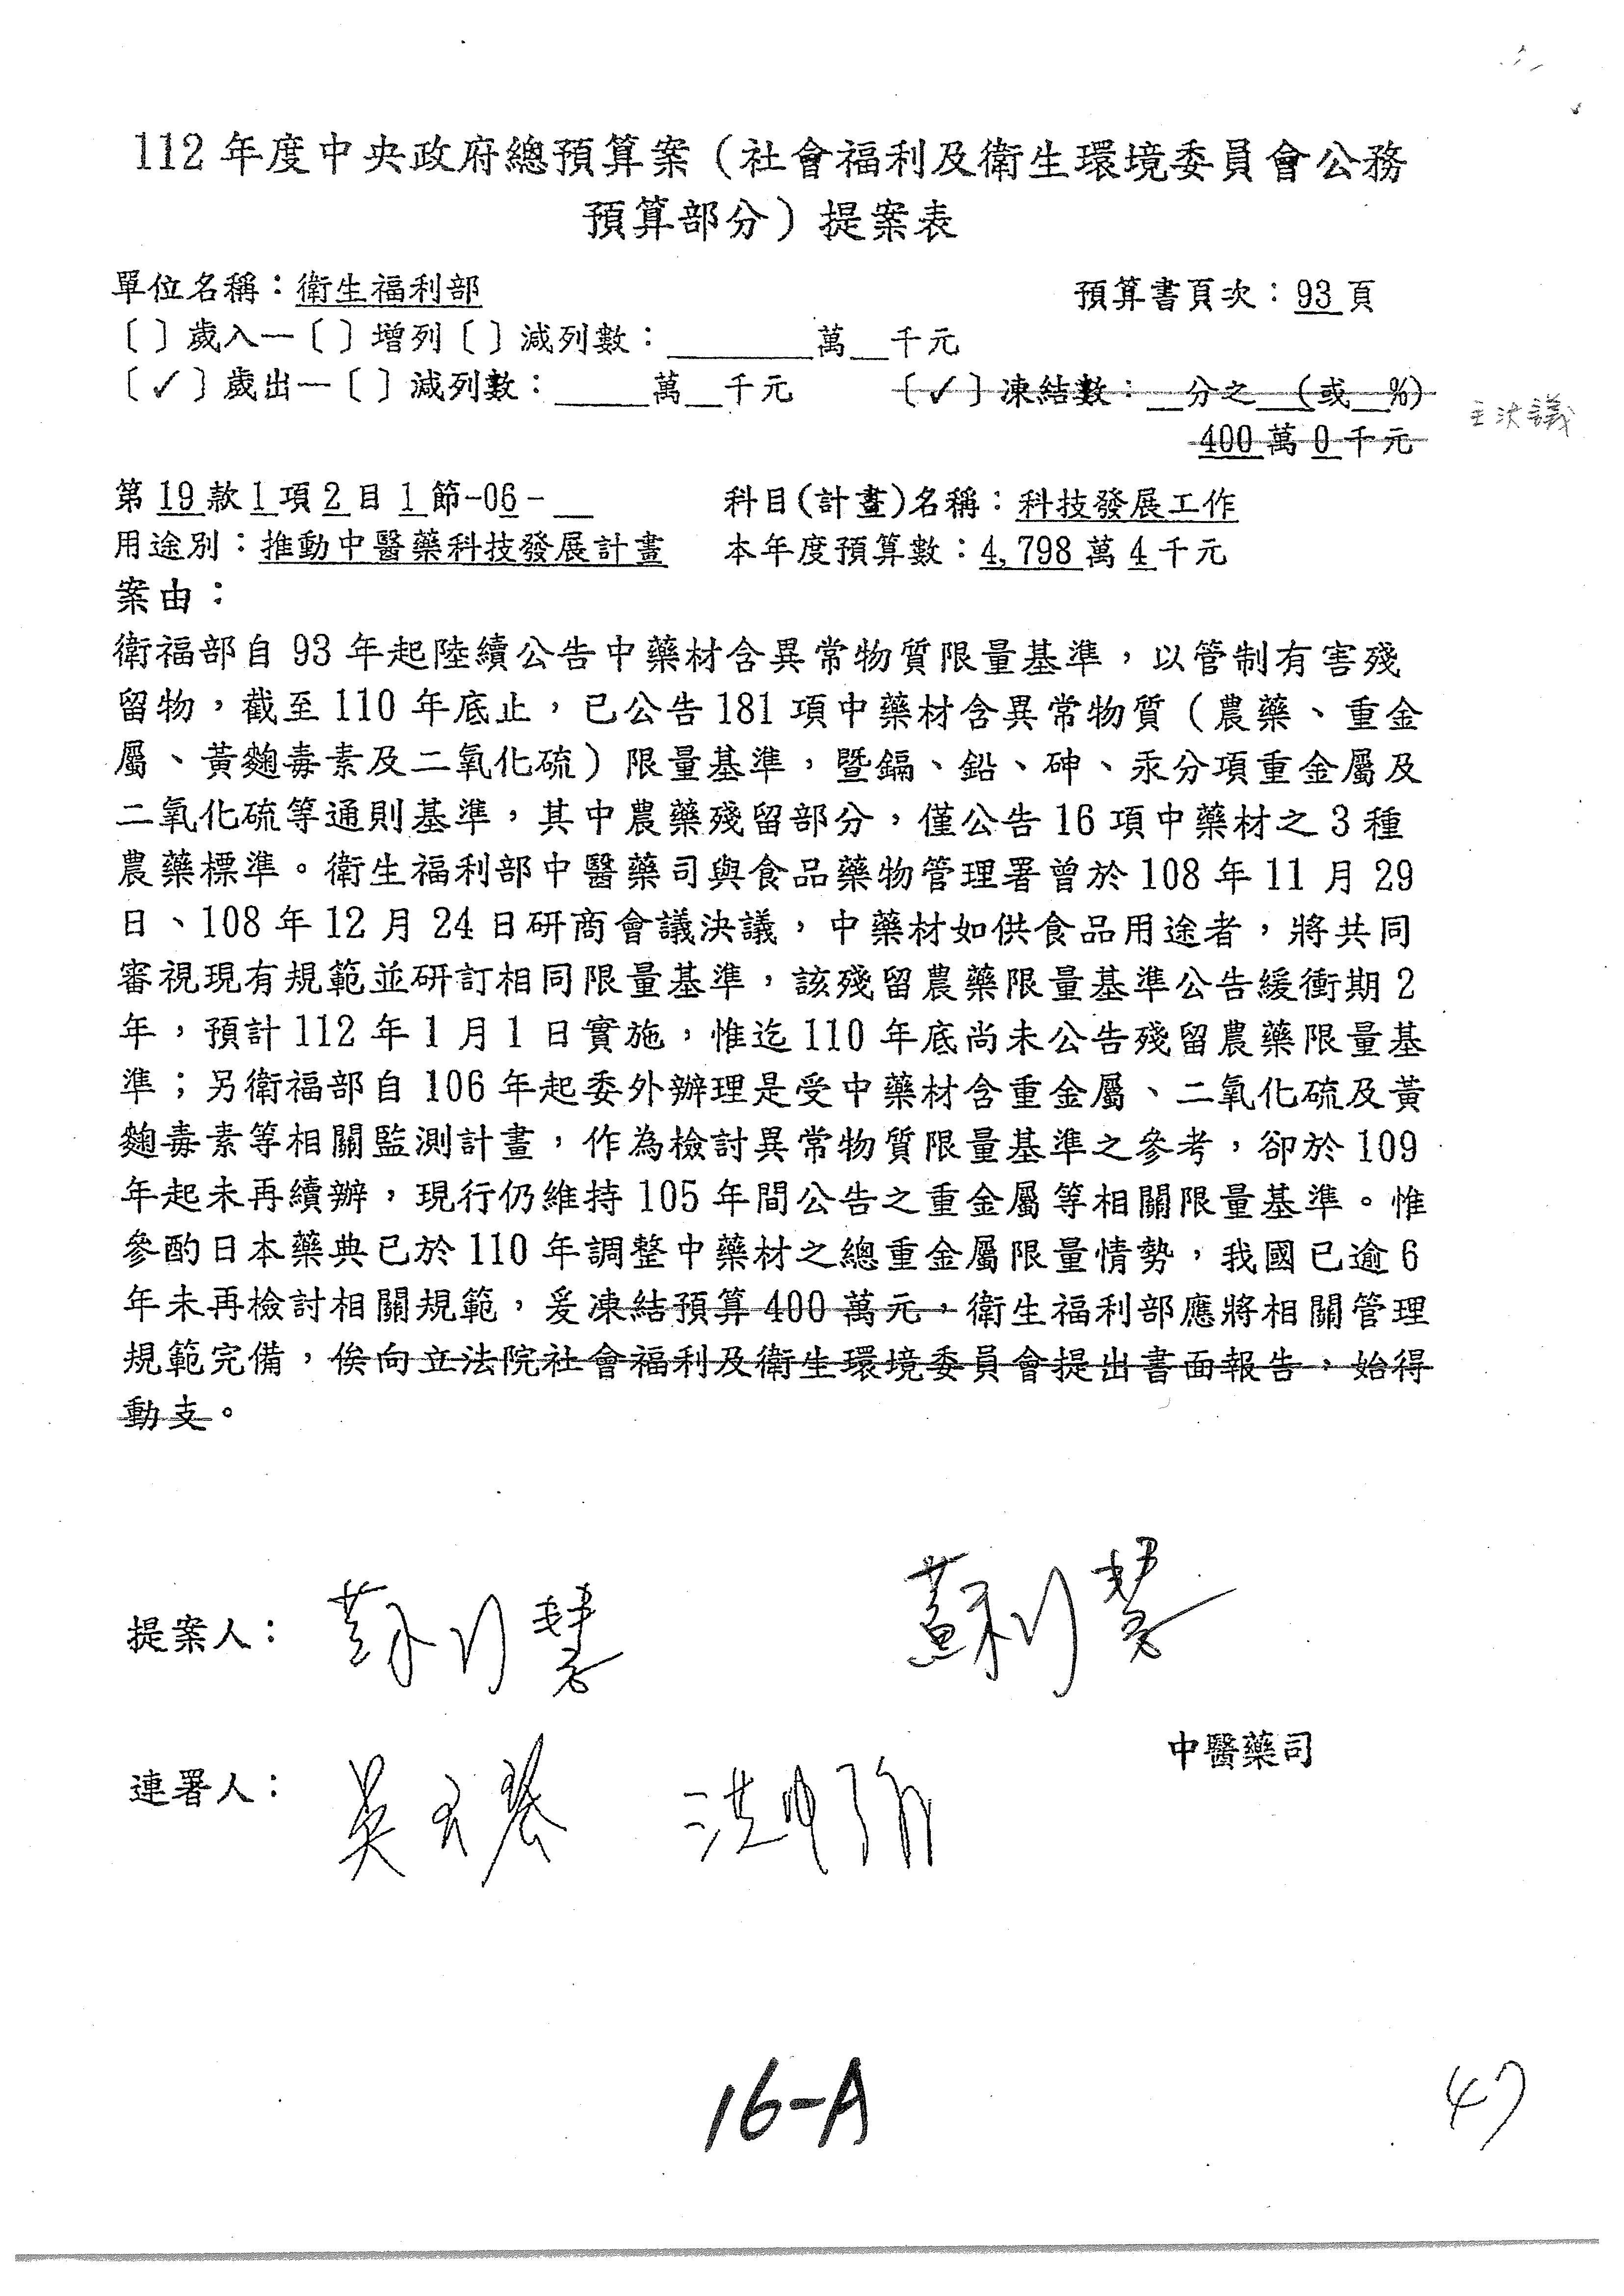 112 年度中央政府總預算案（社會福利及衛生環境委員會公務
預算部分）提案表
單位名稱：衛生福利部 預算書頁次：93 頁
〔 〕歲入—〔 〕增列〔 〕減列數：________萬__千元
〔✓〕歲出—〔 〕減列數：_____萬__千元 〔✓〕凍結數：__分之__(或__%)
主決議
400 萬 0 千元
第 19 款 1 項 2 目 1 節-06-__ 科目(計畫)名稱：科技發展工作
用途別：推動中醫藥科技發展計畫 本年度預算數：4,798 萬 4 千元
案由：
衛福部自 93 年起陸續公告中藥材含異常物質限量基準，以管制有害殘
留物，截至 110 年底止，已公告 181 項中藥材含異常物質（農藥、重金
屬、黃麴毒素及二氧化硫）限量基準，暨鎘、鉛、砷、汞分項重金屬及
二氧化硫等通則基準，其中農藥殘留部分，僅公告 16 項中藥材之 3 種
農藥標準。衛生福利部中醫藥司與食品藥物管理署曾於 108 年 11 月 29
日、108 年 12 月 24 日研商會議決議，中藥材如供食品用途者，將共同
審視現有規範並研訂相同限量基準，該殘留農藥限量基準公告緩衝期 2
年，預計 112 年 1 月 1 日實施，惟迄 110 年底尚未公告殘留農藥限量基
準；另衛福部自 106 年起委外辦理是受中藥材含重金屬、二氧化硫及黃
麴毒素等相關監測計畫，作為檢討異常物質限量基準之參考，卻於 109
年起未再續辦，現行仍維持 105 年間公告之重金屬等相關限量基準。惟
參酌日本藥典已於 110 年調整中藥材之總重金屬限量情勢，我國已逾 6
年未再檢討相關規範，爰凍結預算 400 萬元，衛生福利部應將相關管理
規範完備，俟向立法院社會福利及衛生環境委員會提出書面報告，始得
動支。
提案人： 蘇巧慧 蘇巧慧
中醫藥司
連署人： 吳玉琴 洪申翰
16-A
47